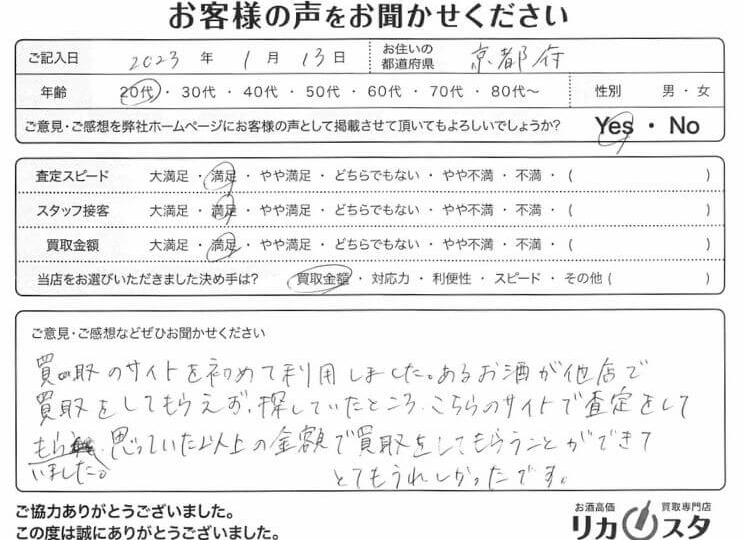 お客様の声をお聞かせください
ご記入日 2023 年 1 月 13 日 お住いの都道府県 京都府
年齢 20代・30代・40代・50代・60代・70代・80代〜 性別 男・女
ご意見・ご感想を弊社ホームページにお客様の声として掲載させて頂いてもよろしいでしょうか? Yes・No
査定スピード 大満足・満足・やや満足・どちらでもない・やや不満・不満・( )
スタッフ接客 大満足・満足・やや満足・どちらでもない・やや不満・不満・( )
買取金額 大満足・満足・やや満足・どちらでもない・やや不満・不満・( )
当店をお選びいただきました決め手は? 買取金額・対応力・利便性・スピード・その他 ( )
ご意見・ご感想などぜひお聞かせください
買取のサイトを初めて利用しました。あるお酒が他店で
買取をしてもらえず、探していたところ、こちらのサイトで査定をして
もらい 思っていた以上の金額で買取をしてもらうことができて
いました。 とてもうれしかったです。
ご協力ありがとうございました。
この度は誠にありがとうございました。
お酒高価 買取専門店
リカスタ